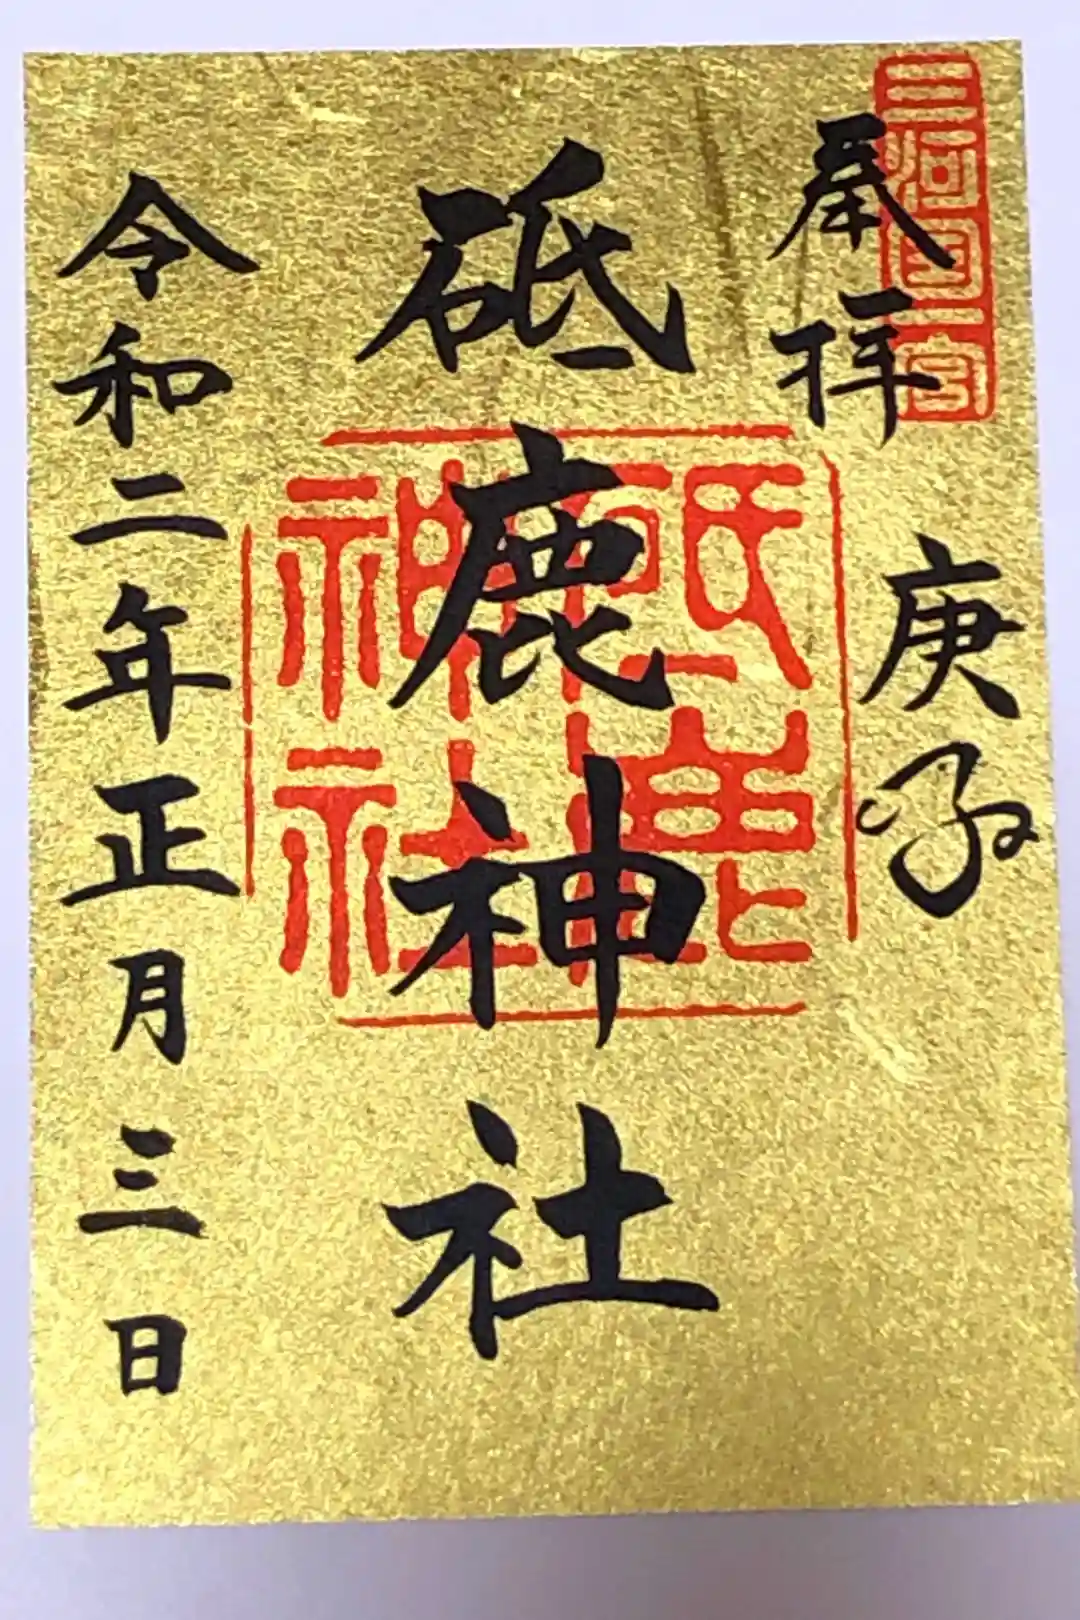 三河国一宮
奉拝
庚子
砥鹿神社
砥鹿
神社
令和二年正月三日